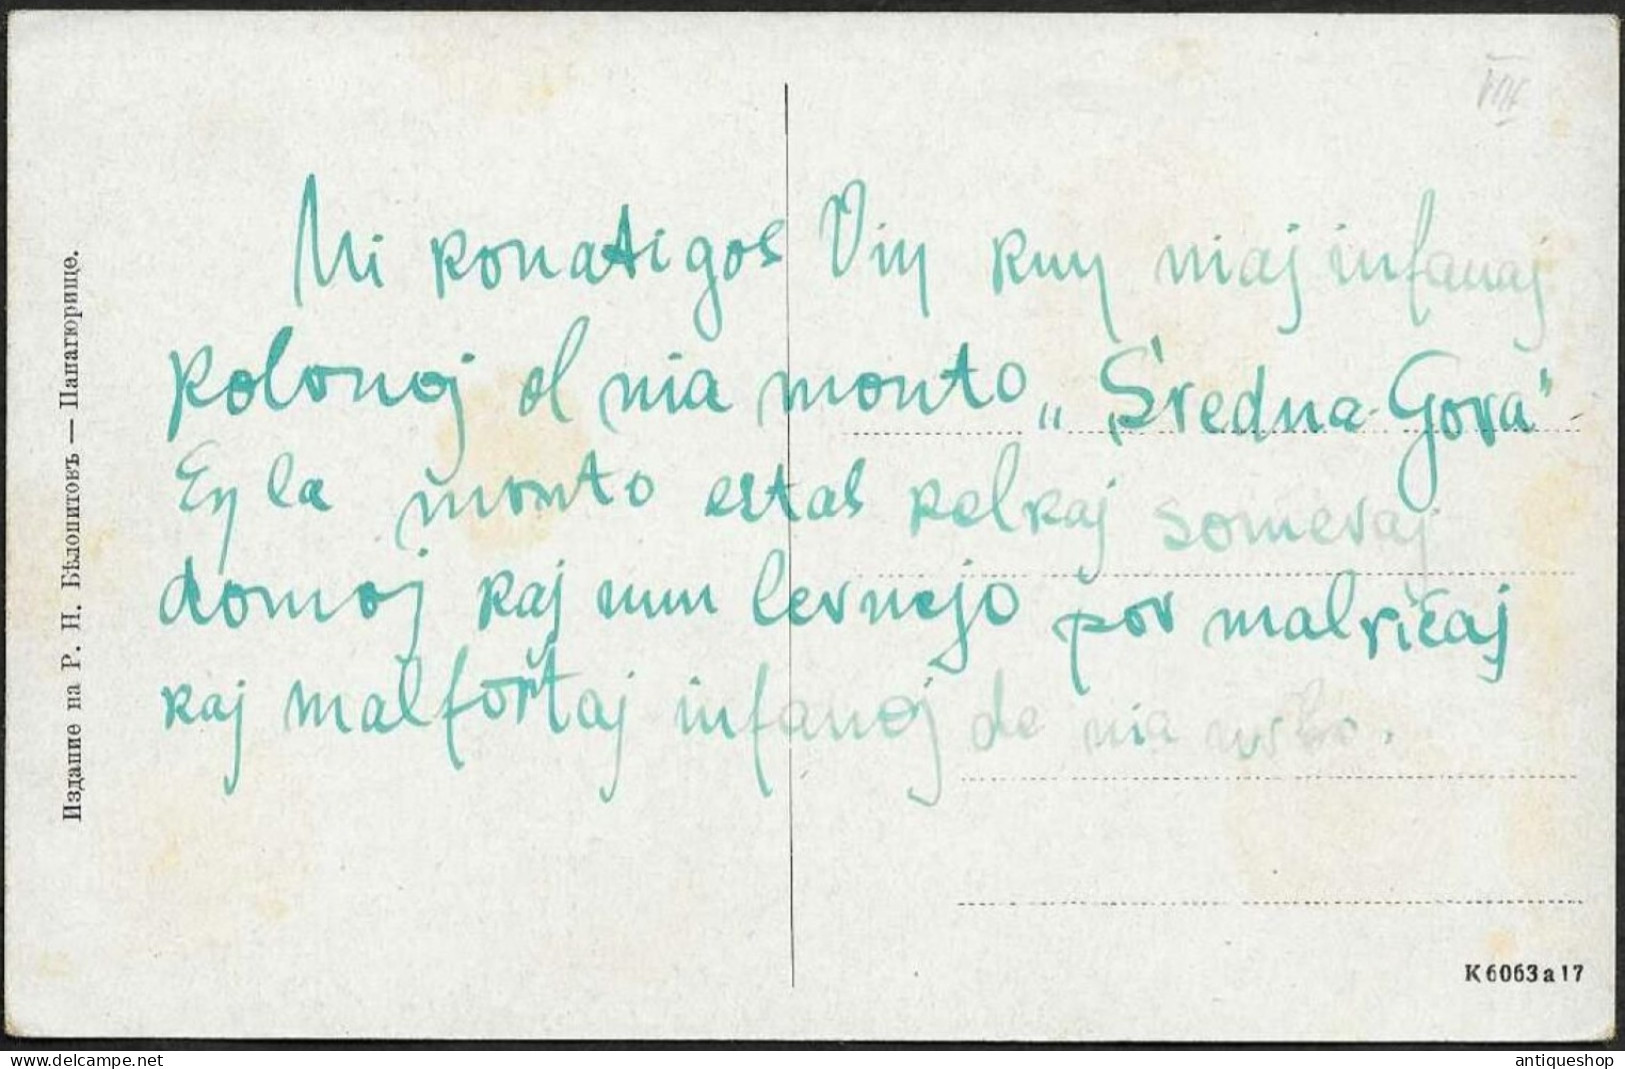 Mi konatigos Vin kun niaj infanaj
kolonoj el nia monto „Sredna-Gora"
En la monto estas kelkaj someraj
domoj kaj unu lernejo por malričaj
kaj malfortaj infanoj de nia urbo.
Издание на Р. Н. Бѣлопитовъ — Панагюрище.
K 6063 a 17
antiqueshop